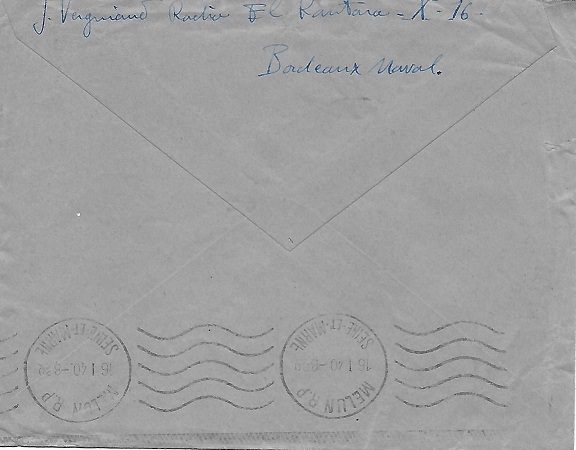 J. Vergniaud Radio El Kantara - X - 16 -
Bordeaux Naval.
MELUN R.P
16 I 40 - 8
SEINE-ET-MARNE
MELUN R.P
16 I 40 - 8
SEINE-ET-MARNE